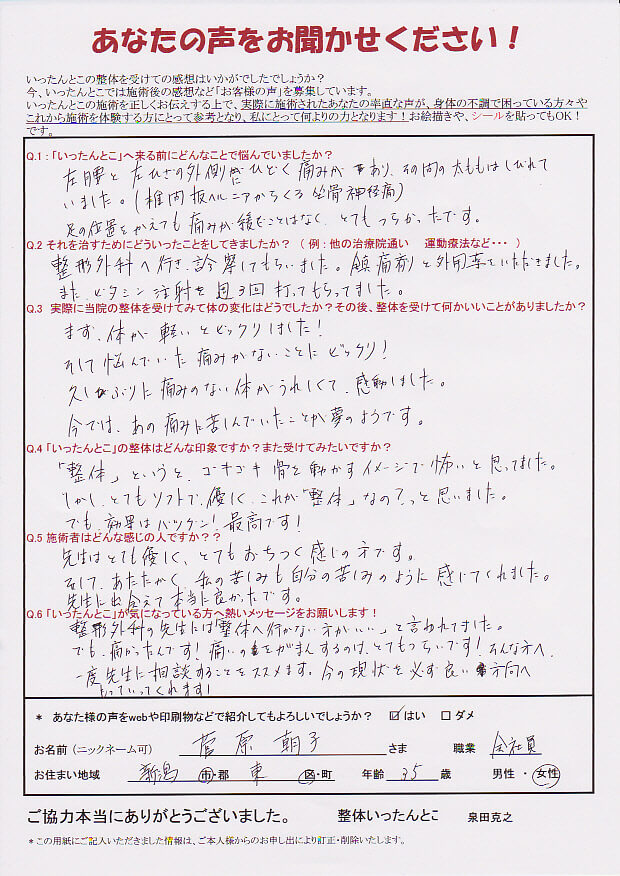 あなたの声をお聞かせください！
いったんとこの整体を受けての感想はいかがでしたでしょうか？
今、いったんとこでは施術後の感想など「お客様の声」を募集しています。
いったんとこの施術を正しくお伝えする上で、実際に施術されたあなたの率直な声が、身体の不調で困っている方々や
これから施術を体験する方にとって参考となり、私にとって何よりの力となります！お絵描きや、シールを貼ってもOK！
です。
Q.1：「いったんとこ」へ来る前にどんなことで悩んでいましたか？
左腰と左ひざの外側がにひどく痛みがあり、その間の太ももはしびれて
いました。（椎間板ヘルニアからくる坐骨神経痛）
足の位置をかえても痛みが緩むことはなく、とてもつらかったです。
Q.2 それを治すためにどういったことをしてきましたか？（例：他の治療院通い　運動療法など・・・）
整形外科へ行き、診察してもらいました。鎮痛剤と外用薬をいただきました。
また、ビタミン注射を週3回打ってもらってました。
Q.3　実際に当院の整体を受けてみて体の変化はどうでしたか？その後、整体を受けて何かいいことがありましたか？
まず、体が軽いとビックリしました！
そして悩んでいた痛みがないことにビックリ！
久しぶりに痛みのない体がうれしくて、感動しました。
今では、あの痛みに苦しんでいたことが夢のようです。
Q.4「いったんとこ」の整体はどんな印象ですか？また受けてみたいですか？
「整体」というと、ゴキゴキ骨を動かすイメージで怖いと思ってました。
しかし、とてもソフトで、優しく、これが「整体」なの？っと思いました。
でも、効果はバツグン！最高です！
Q.5 施術者はどんな感じの人ですか？？
先生はとても優しく、とてもおちつく感じの方です。
そして、あたたかく、私の苦しみも自分の苦しみのように感じてくれました。
先生に出会えて本当に良かったです。
Q.6「いったんとこ」が気になっている方へ熱いメッセージをお願いします！
整形外科の先生には「整体へ行かない方がいい」と言われてました。
でも、痛かったんです！痛いのをがまんするのは、とてもつらいです！そんな方へ、
一度先生に相談することをススメます。今の現状を必ず良い方向へ
もっていってくれます！
＊ あなた様の声をwebや印刷物などで紹介してもよろしいでしょうか？ ☑はい □ダメ
お名前（ニックネーム可） 菅原 朝子 さま 職業 会社員
お住まい地域 新潟 市・郡 東 区・町 年齢 35 歳 男性・女性
ご協力本当にありがとうございました。 整体いったんとこ 泉田克之
＊この用紙にご記入いただきました情報は、ご本人様からのお申し出により訂正・削除いたします。